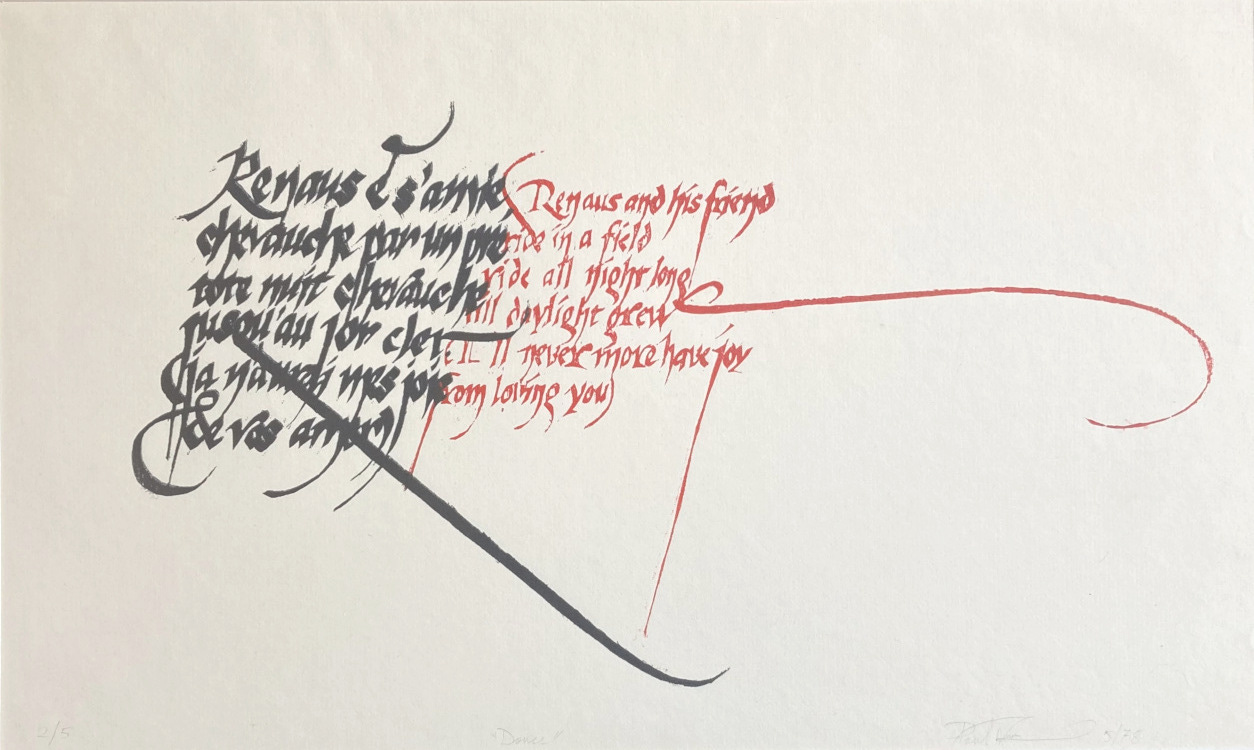 Renaus & s'amie
chevauche par un pré
tote nuit chevauche
jusqu'au jor cler
(Ja n'aurai mes joie
de vos amer)
Renaus and his friend
ride in a field
ride all night long
till daylight grew
(I'll never more have joy
from loving you)
2/5